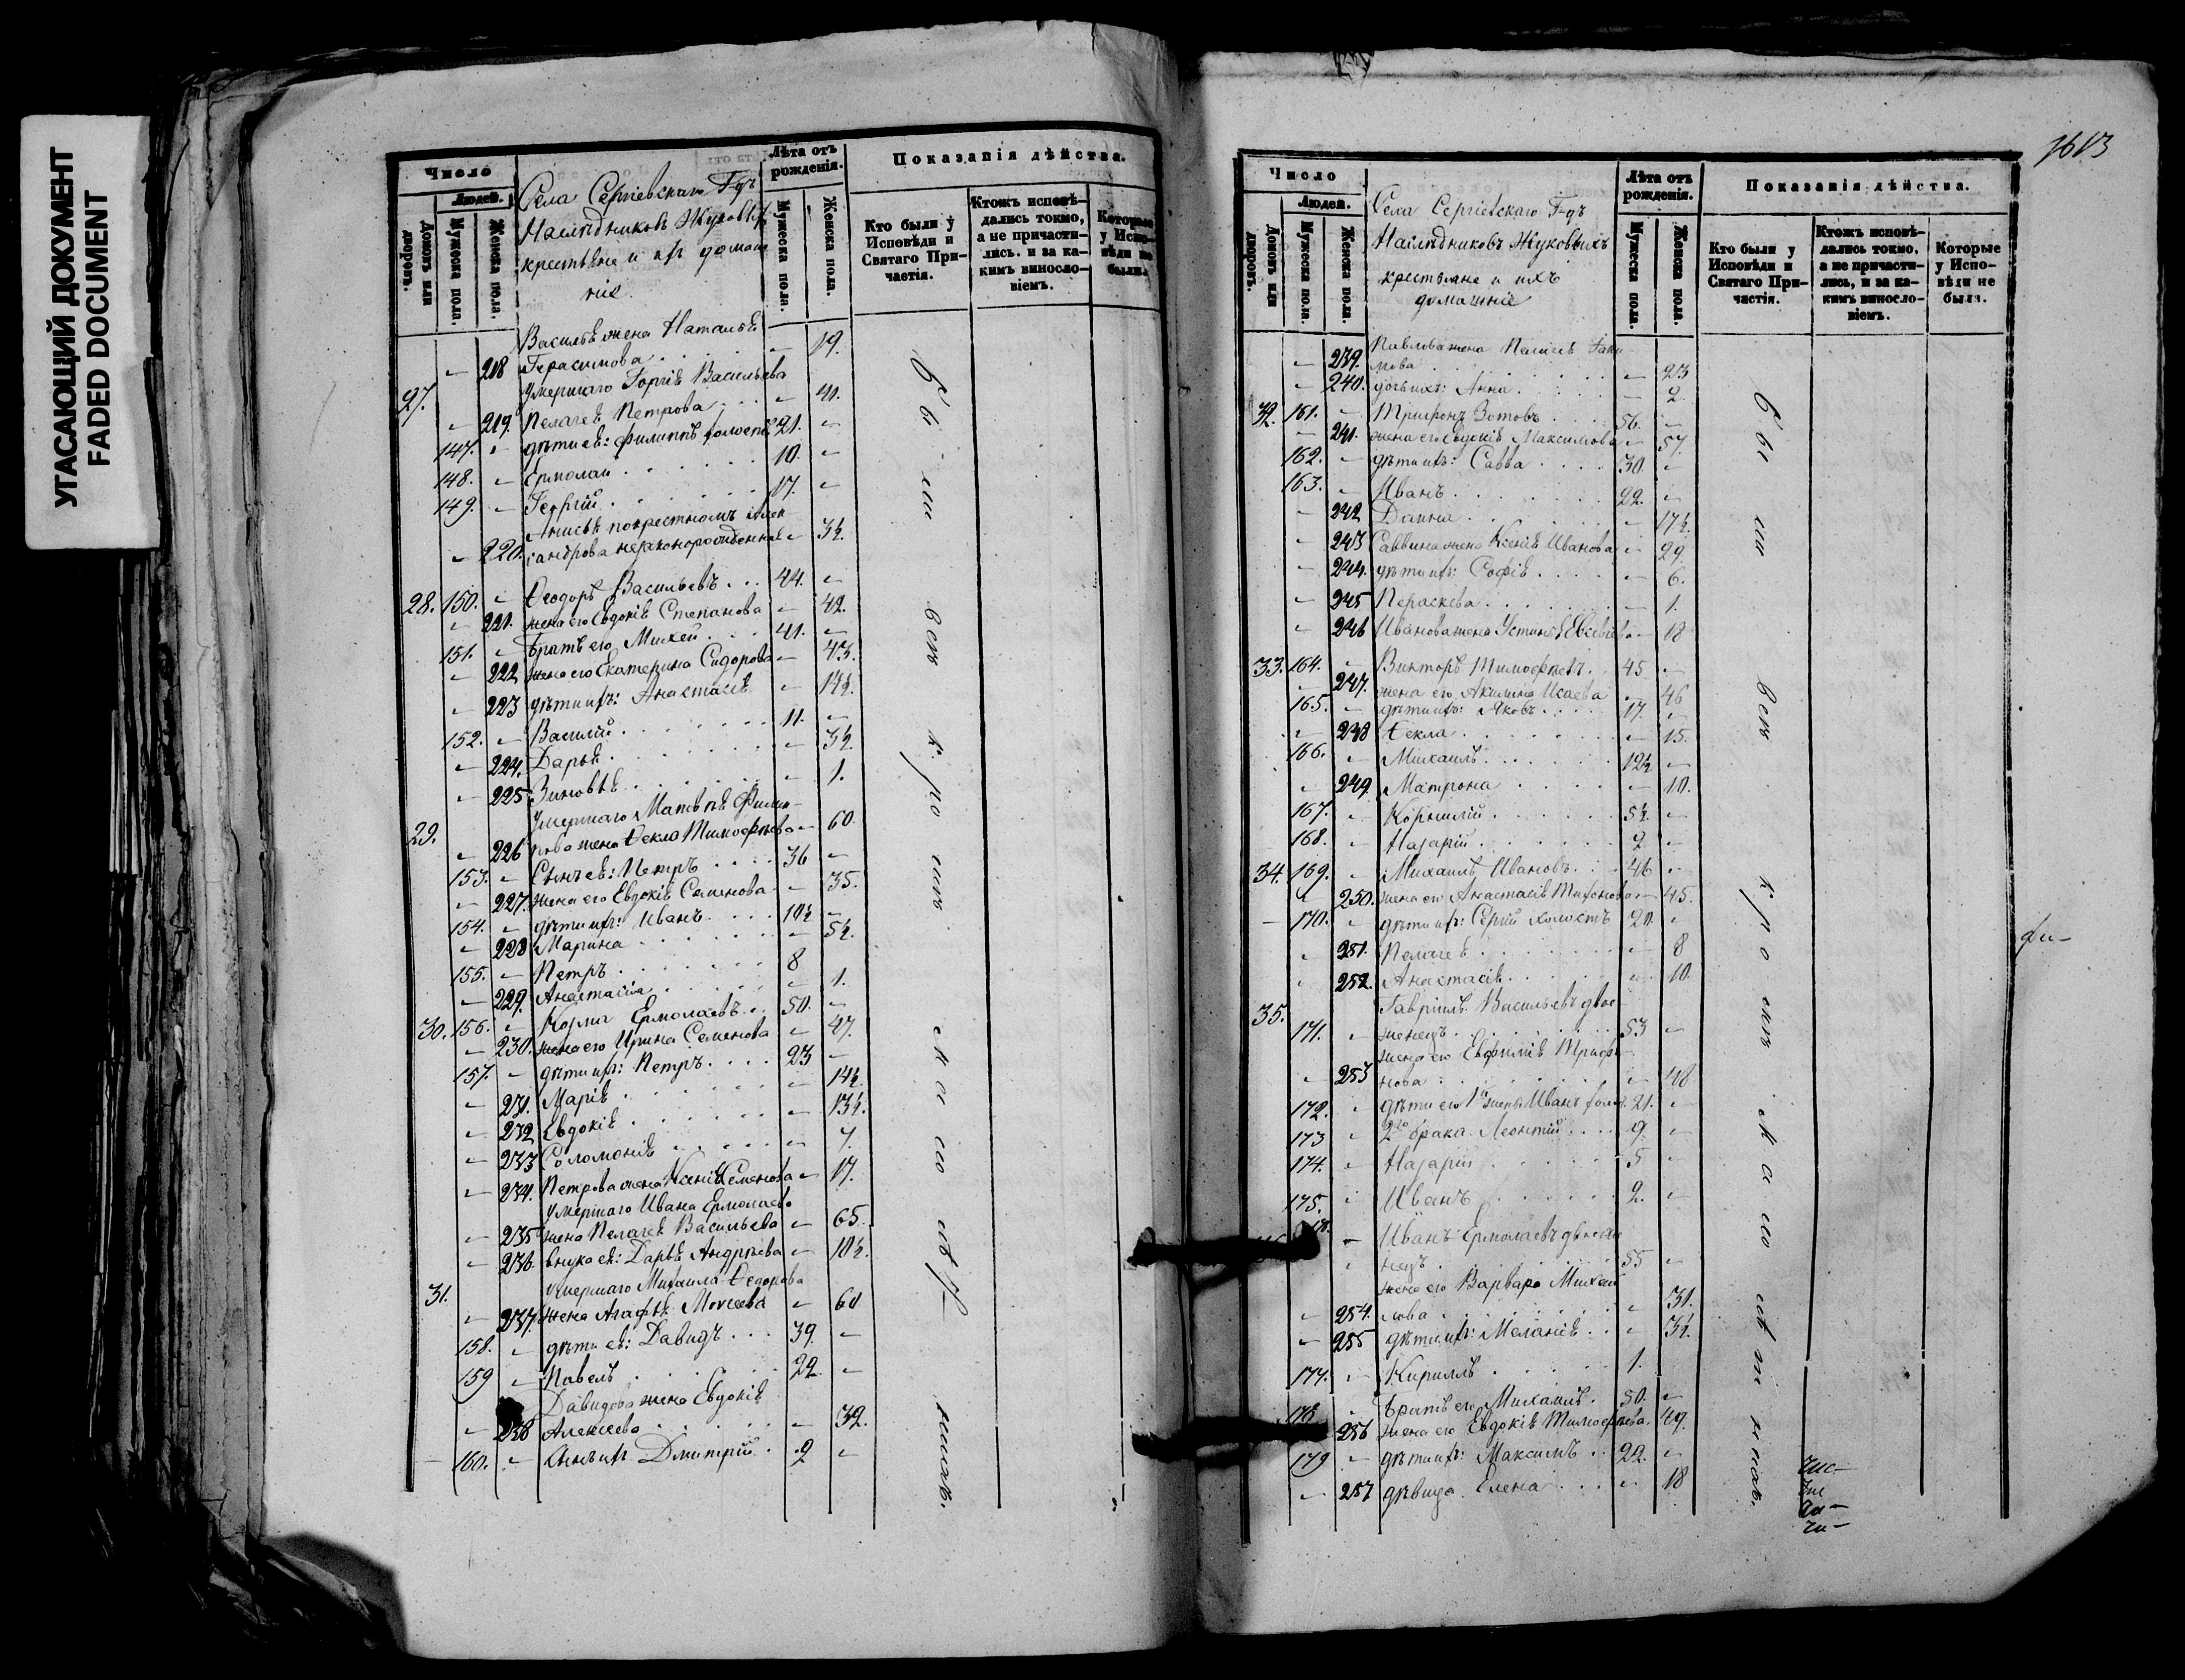 УГАСАЮЩИЙ ДОКУМЕНТ
FADED DOCUMENT
Число
Людей.
Домовъ или дворовъ.
Мужеска пола.
Женска пола.
Села Сергіевскаго Г-дъ
Наслѣдниковъ Жуковыхъ
крестьяне и ихъ домаш
ніе
Лѣта отъ рожденія.
Мужеска пола.
Женска пола.
Показанія дѣйства.
Кто были у Исповѣди и Святаго Причастія.
Ктожъ исповѣдались токмо, а не причастились. и за какимъ винословіемъ.
Которые у Исповѣди не были.
Васильѣ жена Наталья
– 218 Герасимова – 19.
27. умершаго Василь‍ева
– 219. Пелагея Петрова – 41.
147. – дѣти ея: Филиппъ холостъ 21. –
148. – Ермолай 10. –
149. – Георгій 17. –
Анисья по крестному Алек
– 220. сандрова незаконорожденная – 3½.
28. 150. – Ѳеодоръ Васильевъ 44. –
– 221. жена его Евдокія Степанова – 42.
151. – братъ его Михей 41. –
– 222 жена его Екатерина Сидорова – 43.
– 223 дѣти ихъ: Анастасія – 14½.
152. – Василій 11. –
– 224. Дарья – 3½.
– 225 Зиновья – 1.
29. умершаго Матвѣя Филип
– 226 пова жена Ѳекла Тимофѣева – 60.
153. – Сынъ ея: Петръ 36 –
– 227. жена его Евдокія Семенова – 35.
154. – дѣти ихъ: Иванъ 10½ –
– 228 Марина – 5½.
155. – Петръ 8 –
– 229. Анастасія – 1.
30. 156. – Козма Ермолаевъ 50. –
– 230. жена его Ирина Семенова – 47.
157. – дѣти ихъ: Петръ 23 –
– 231. Марія – 14½.
– 232 Евдокія – 13½.
– 233 Соломонія – 7.
– 234. Петрова жена Ксенія Семенова – 17.
умершаго Ивана Ермолаева
– 235 жена Пелагея Васильева – 65.
– 236. внука ея: Дарья Андрѣева – 10½.
31. умершаго Михаила Ѳедорова
– 237. жена Агафья Моисеева – 60
158. – дѣти ея: Давидъ 39. –
159 – Павелъ 22. –
Давидова жена Евдокія
– 238 Алексеева – 32.
160. – Сынъ ихъ Дмитрій 2 –
Были вси
1613
Число
Людей.
Домовъ или дворовъ.
Мужеска пола.
Женска пола.
Села Сергіевскаго Г-дъ
Наслѣдниковъ Жуковыхъ
крестьяне и ихъ
домашніе
Лѣта отъ рожденія.
Мужеска пола.
Женска пола.
Показанія дѣйства.
Кто были у Исповѣди и Святаго Причастія.
Ктожъ исповѣдались токмо, а не причастились, и за какимъ винословіемъ.
Которые у Исповѣди не были.
Павлова жена Пелагея
– 239. – 23
– 240. дочь ихъ: Анна – 2
32. 161. – Трифонъ Зотовъ 56. –
– 241. жена его Евдокія Максимова – 57.
162. – дѣти ихъ: Савва 30. –
163. – Иванъ 22. –
– 242 Домна – 17½.
– 243 Саввина жена Ксенія Иванова – 29.
– 244. дѣти ихъ: Софія – 6.
– 245 Пераскева – 1.
– 246 Иванова жена Устинья – 18
33. 164. – Викторъ Тимофѣевъ 45 –
– 247. жена его Акилина Исаева – 46
165. – дѣти ихъ: Яковъ 17. –
– 248 Ѳекла – 15.
166. – Михаилъ 12½ –
– 249 Матрона – 10.
167. – Корнилій 5½. –
168. – Назарій 2 –
34. 169. – Михаилъ Ивановъ 46 –
– 250. жена его Анастасія Тихонова – 45.
170. – дѣти ихъ: Сергій холостъ 20. –
– 251. Пелагея – 8
– 252. Анастасія – 10.
35. Гавріилъ Васильевъ двое
171. – женецъ 53 –
жена его Евфимія Трифо
– 253 нова – 48
172. – дѣти его 1й жены Иванъ холос. 21. –
173 – 2го брака Леонтій 9. –
174. – Назарій 5 –
175. – Иванъ 2. –
– Иванъ Ермолаевъ двоеже
– нецъ 55 –
жена его Варвара Михай
– 254. лова – 31.
– 255 дѣти ихъ: Меланія – 3½.
177. – Кириллъ 1.
178 – братъ его Михаилъ 50. –
256 жена его Евдокія Тимофѣева. 49.
179 – дѣти ихъ: Максимъ 22. –
– 257 дѣвица Елена – 18
Были вси